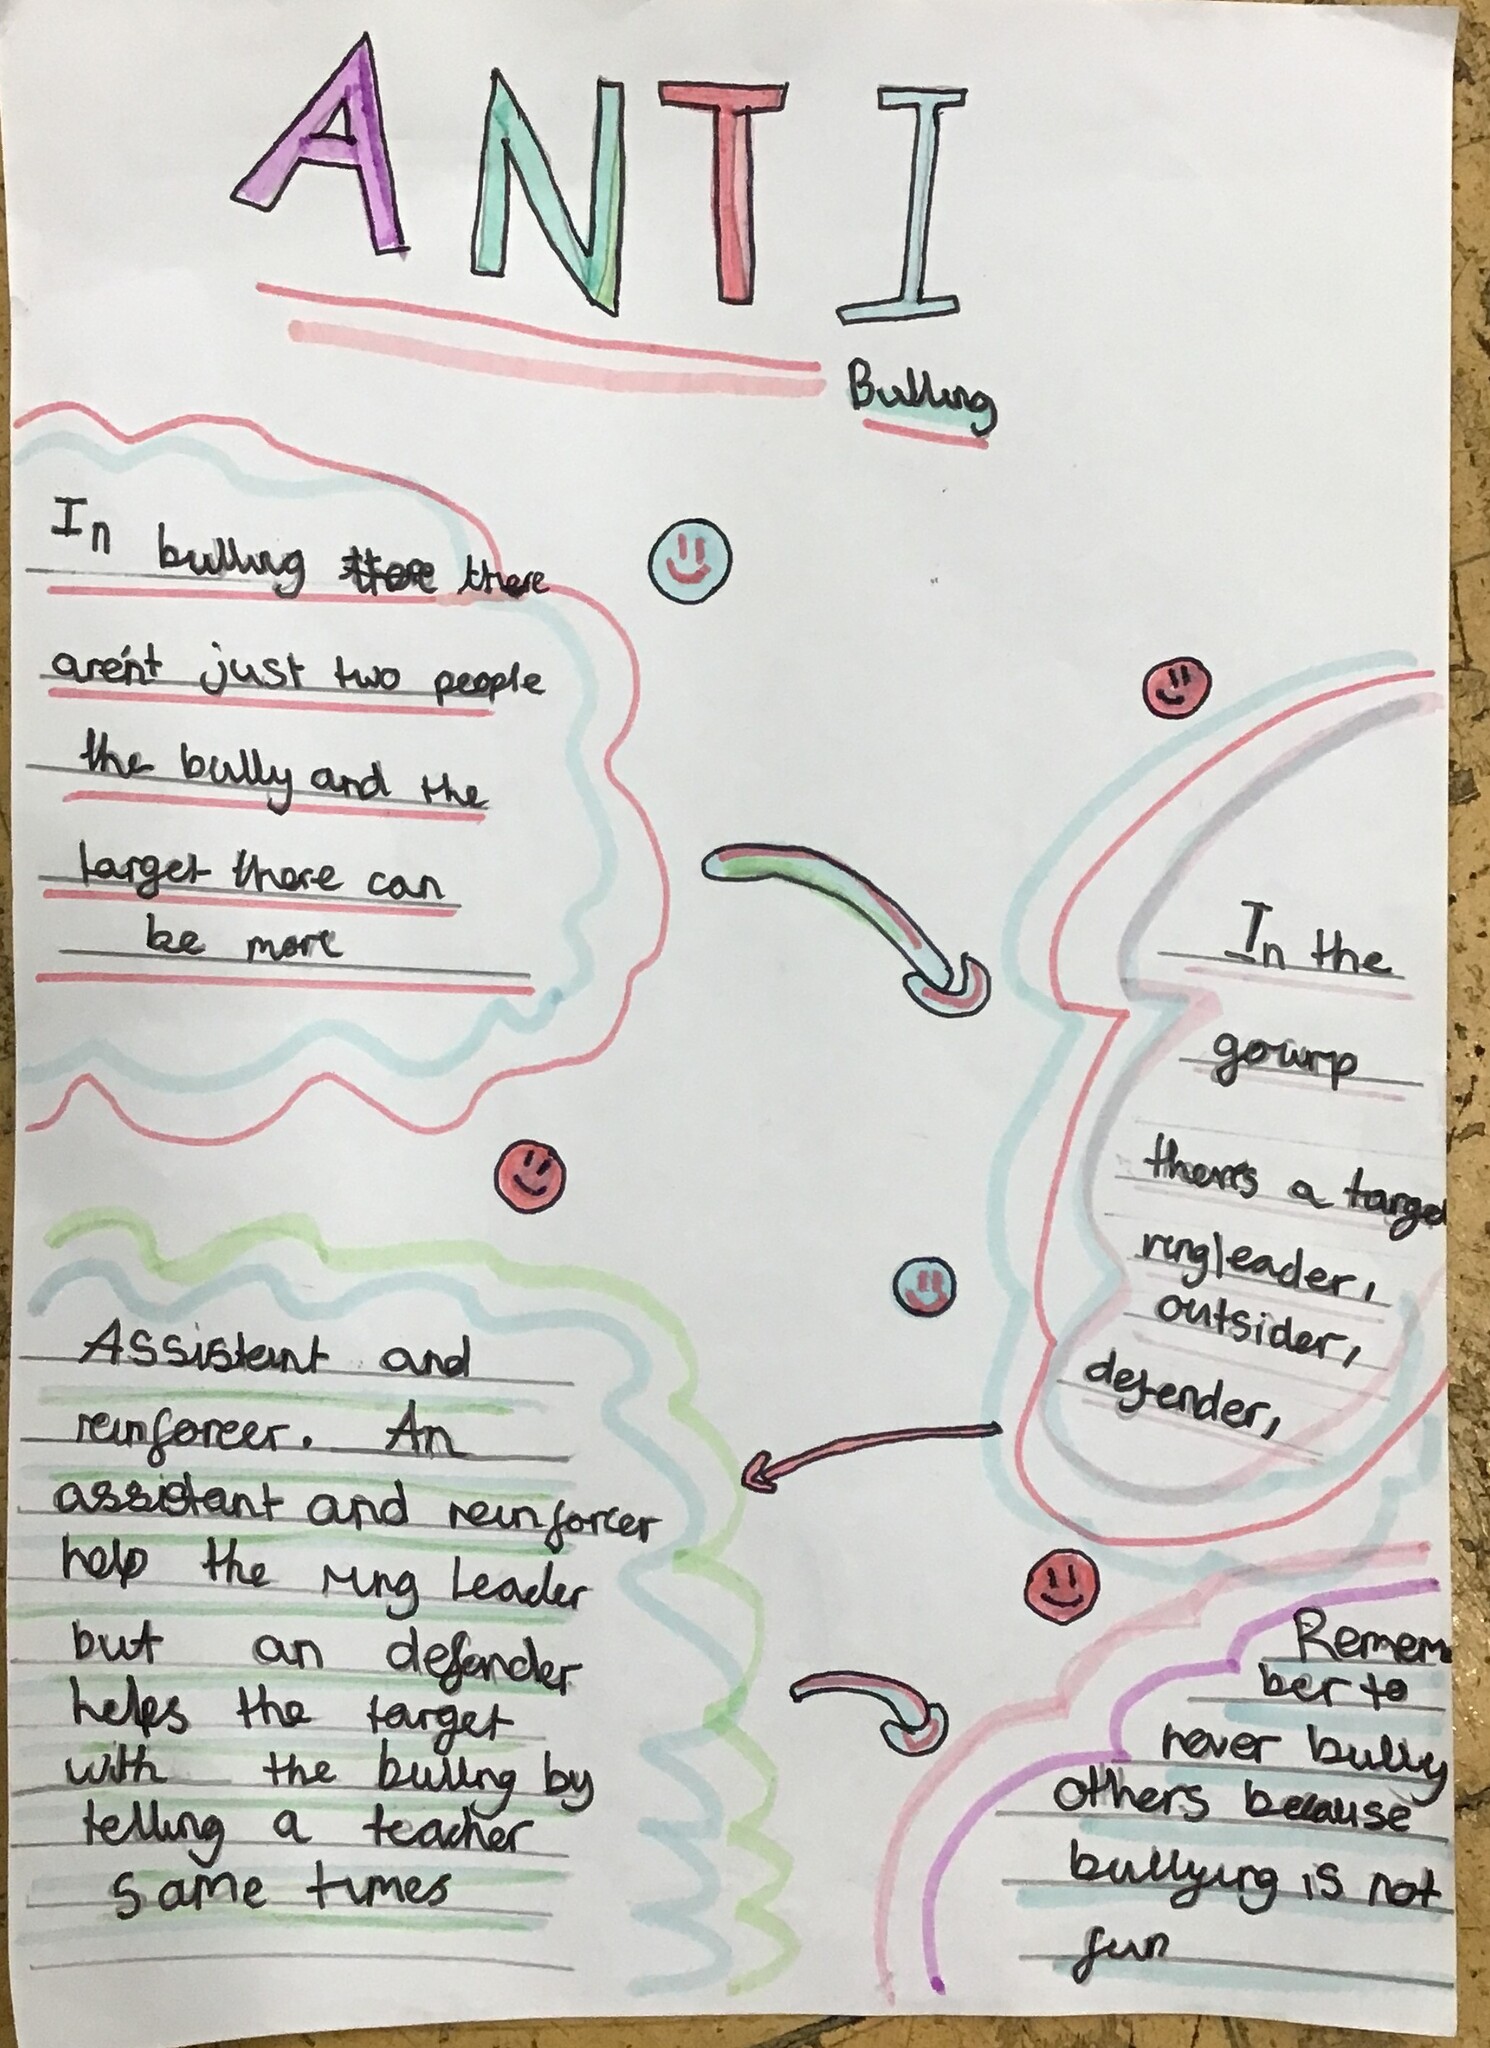 ANTI
Bulling
In bulling there
aren't just two people
the bully and the
target there can
be more
In the
gourp
there's a targe
ringleader,
outsider,
defender,
Assistant and
reinforcer. An
assistant and reinforcer
help the ring leader
but an defender
helps the target
with the bulling by
telling a teacher
same times
Remem
ber to
never bully
others because
bullying is not
fun